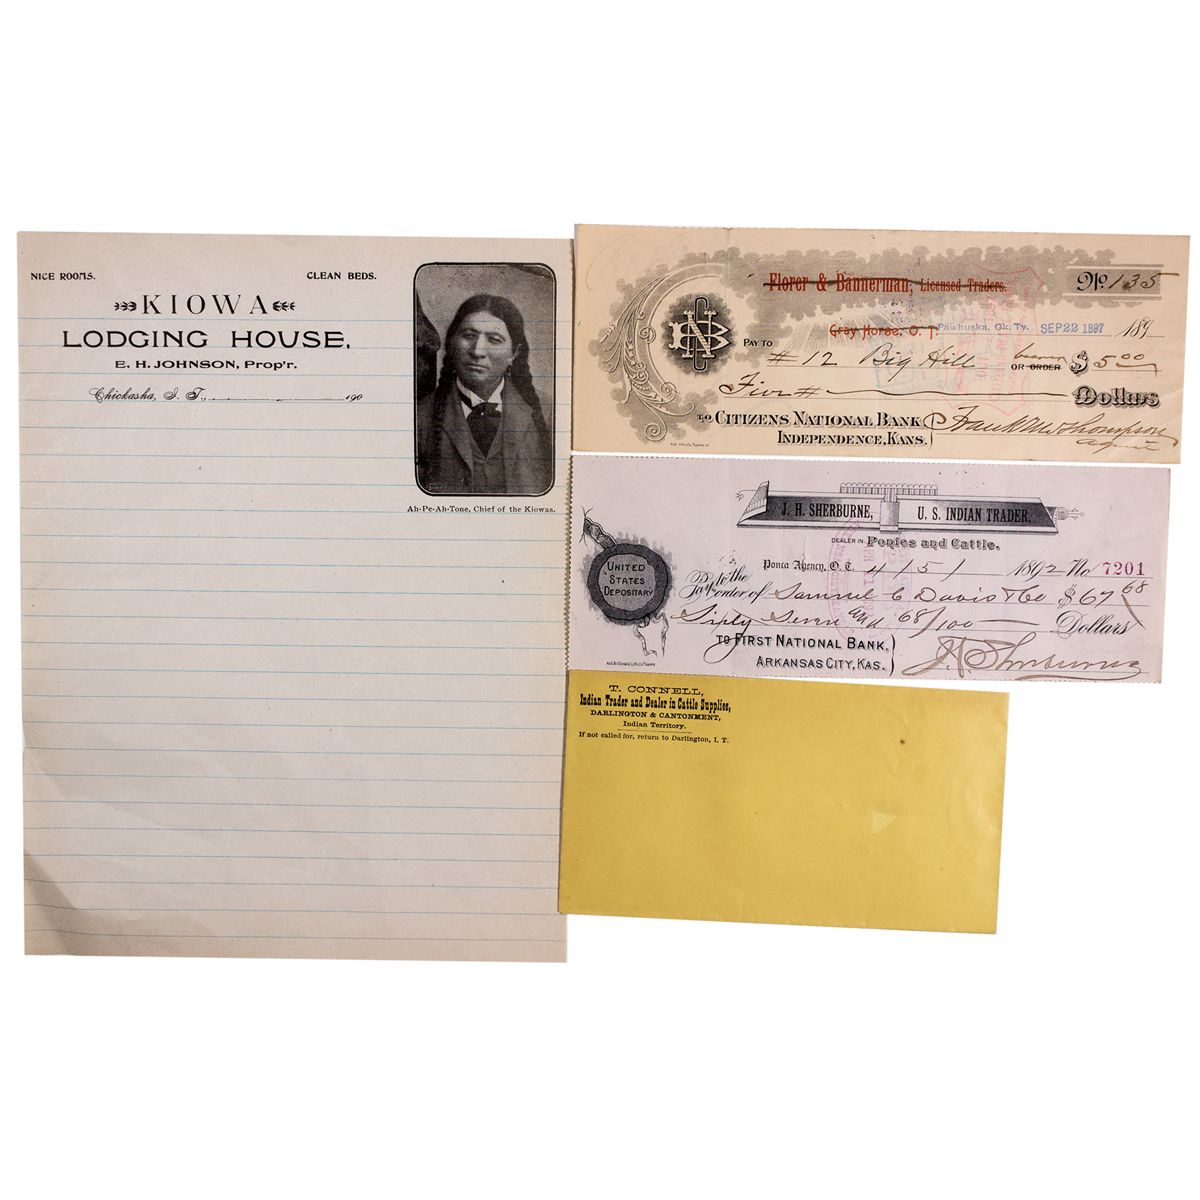 NICE ROOMS. CLEAN BEDS.
KIOWA
LODGING HOUSE,
E. H. JOHNSON, Prop'r.
Chickasha, I. T., 190
Ah-Pe-Ah-Tone, Chief of the Kiowas.
Florer & Bannerman, Licensed Traders. No. 135
Gray Horse, O. T. Pawhuska, Ok. Ty. SEP 22 1897 189
PAY TO # 12 Big Hill OR ORDER bearer $ 5.00
Five # Dollars
TO CITIZENS NATIONAL BANK
INDEPENDENCE, KANS.
Frank M Thompson
Agent
CNB
J. H. SHERBURNE, U. S. INDIAN TRADER.
DEALER IN Ponies and Cattle.
Ponca Agency, O. T. 4/15/ 1892 No. 7201
Pay to the order of Samuel C Davis & Co $67 68
Sixty Seven and 68/100 Dollars
TO FIRST NATIONAL BANK,
ARKANSAS CITY, KAS.
J. H. Sherburne
UNITED
STATES
DEPOSITARY
T. CONNELL,
Indian Trader and Dealer in Cattle Supplies,
DARLINGTON & CANTONMENT,
Indian Territory.
If not called for, return to Darlington, I. T.